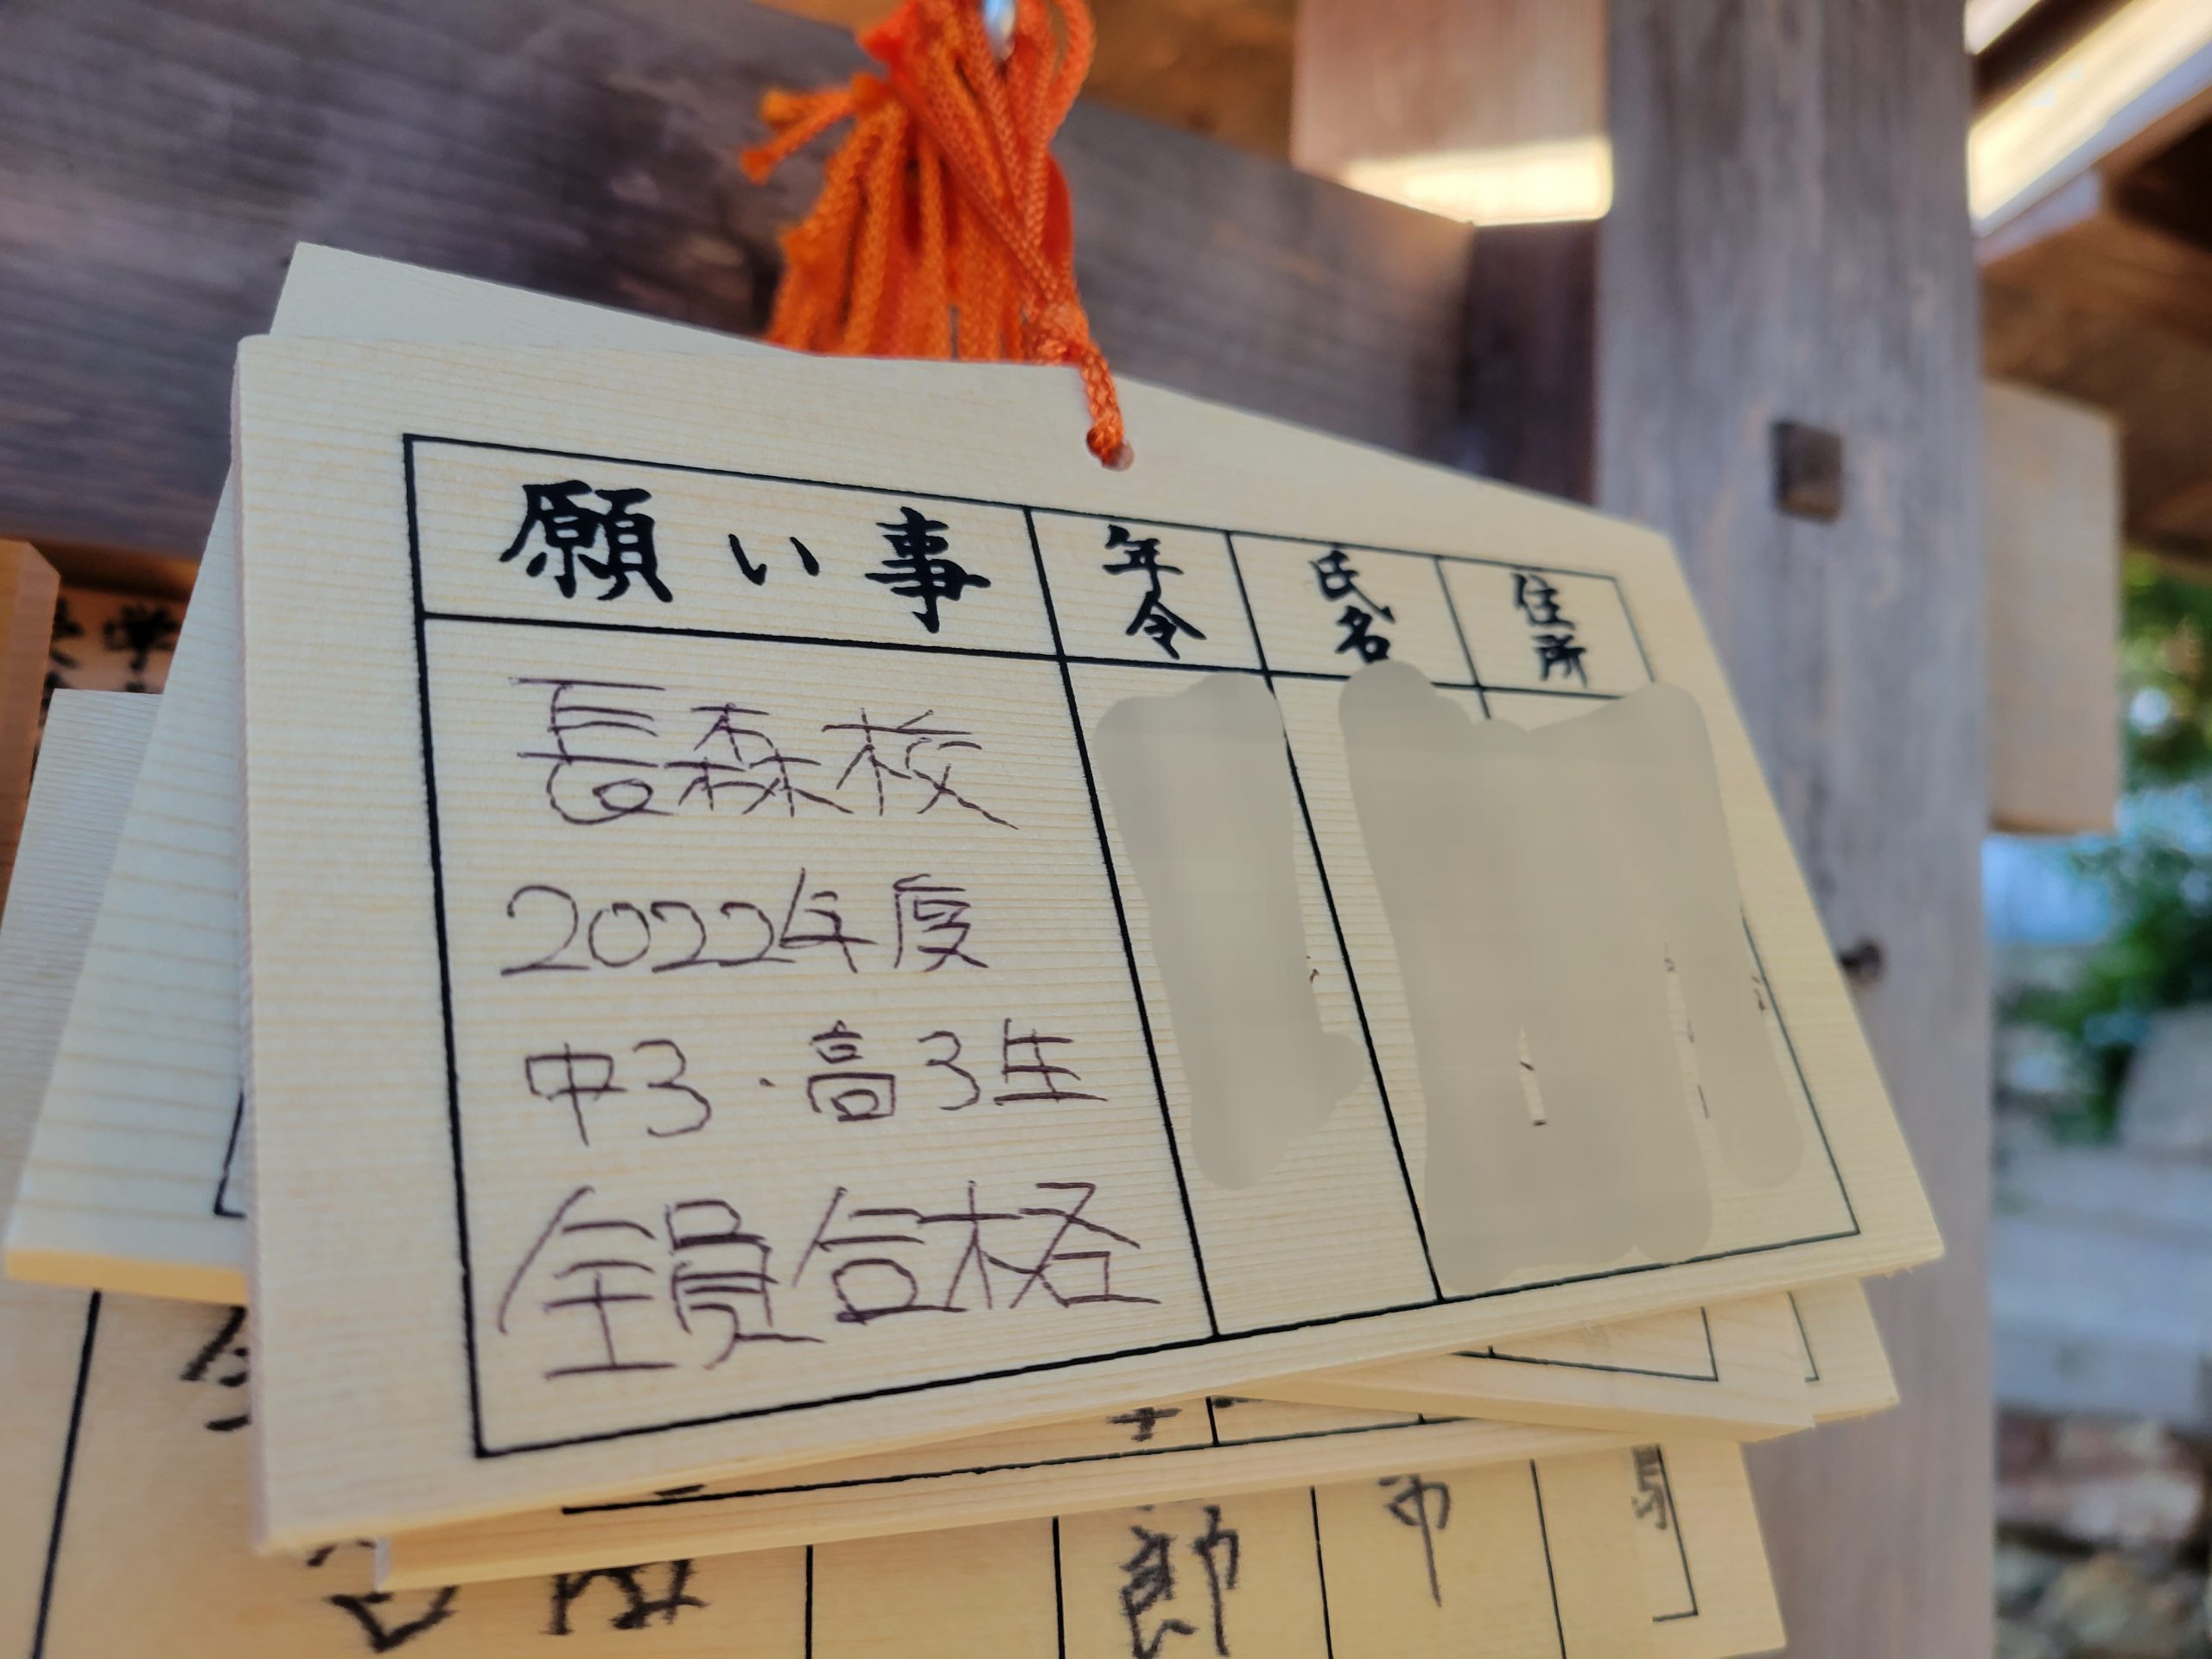 願い事
年令
氏名
住所
長森校
2022年度
中3・高3生
全員合格
郎
市
学